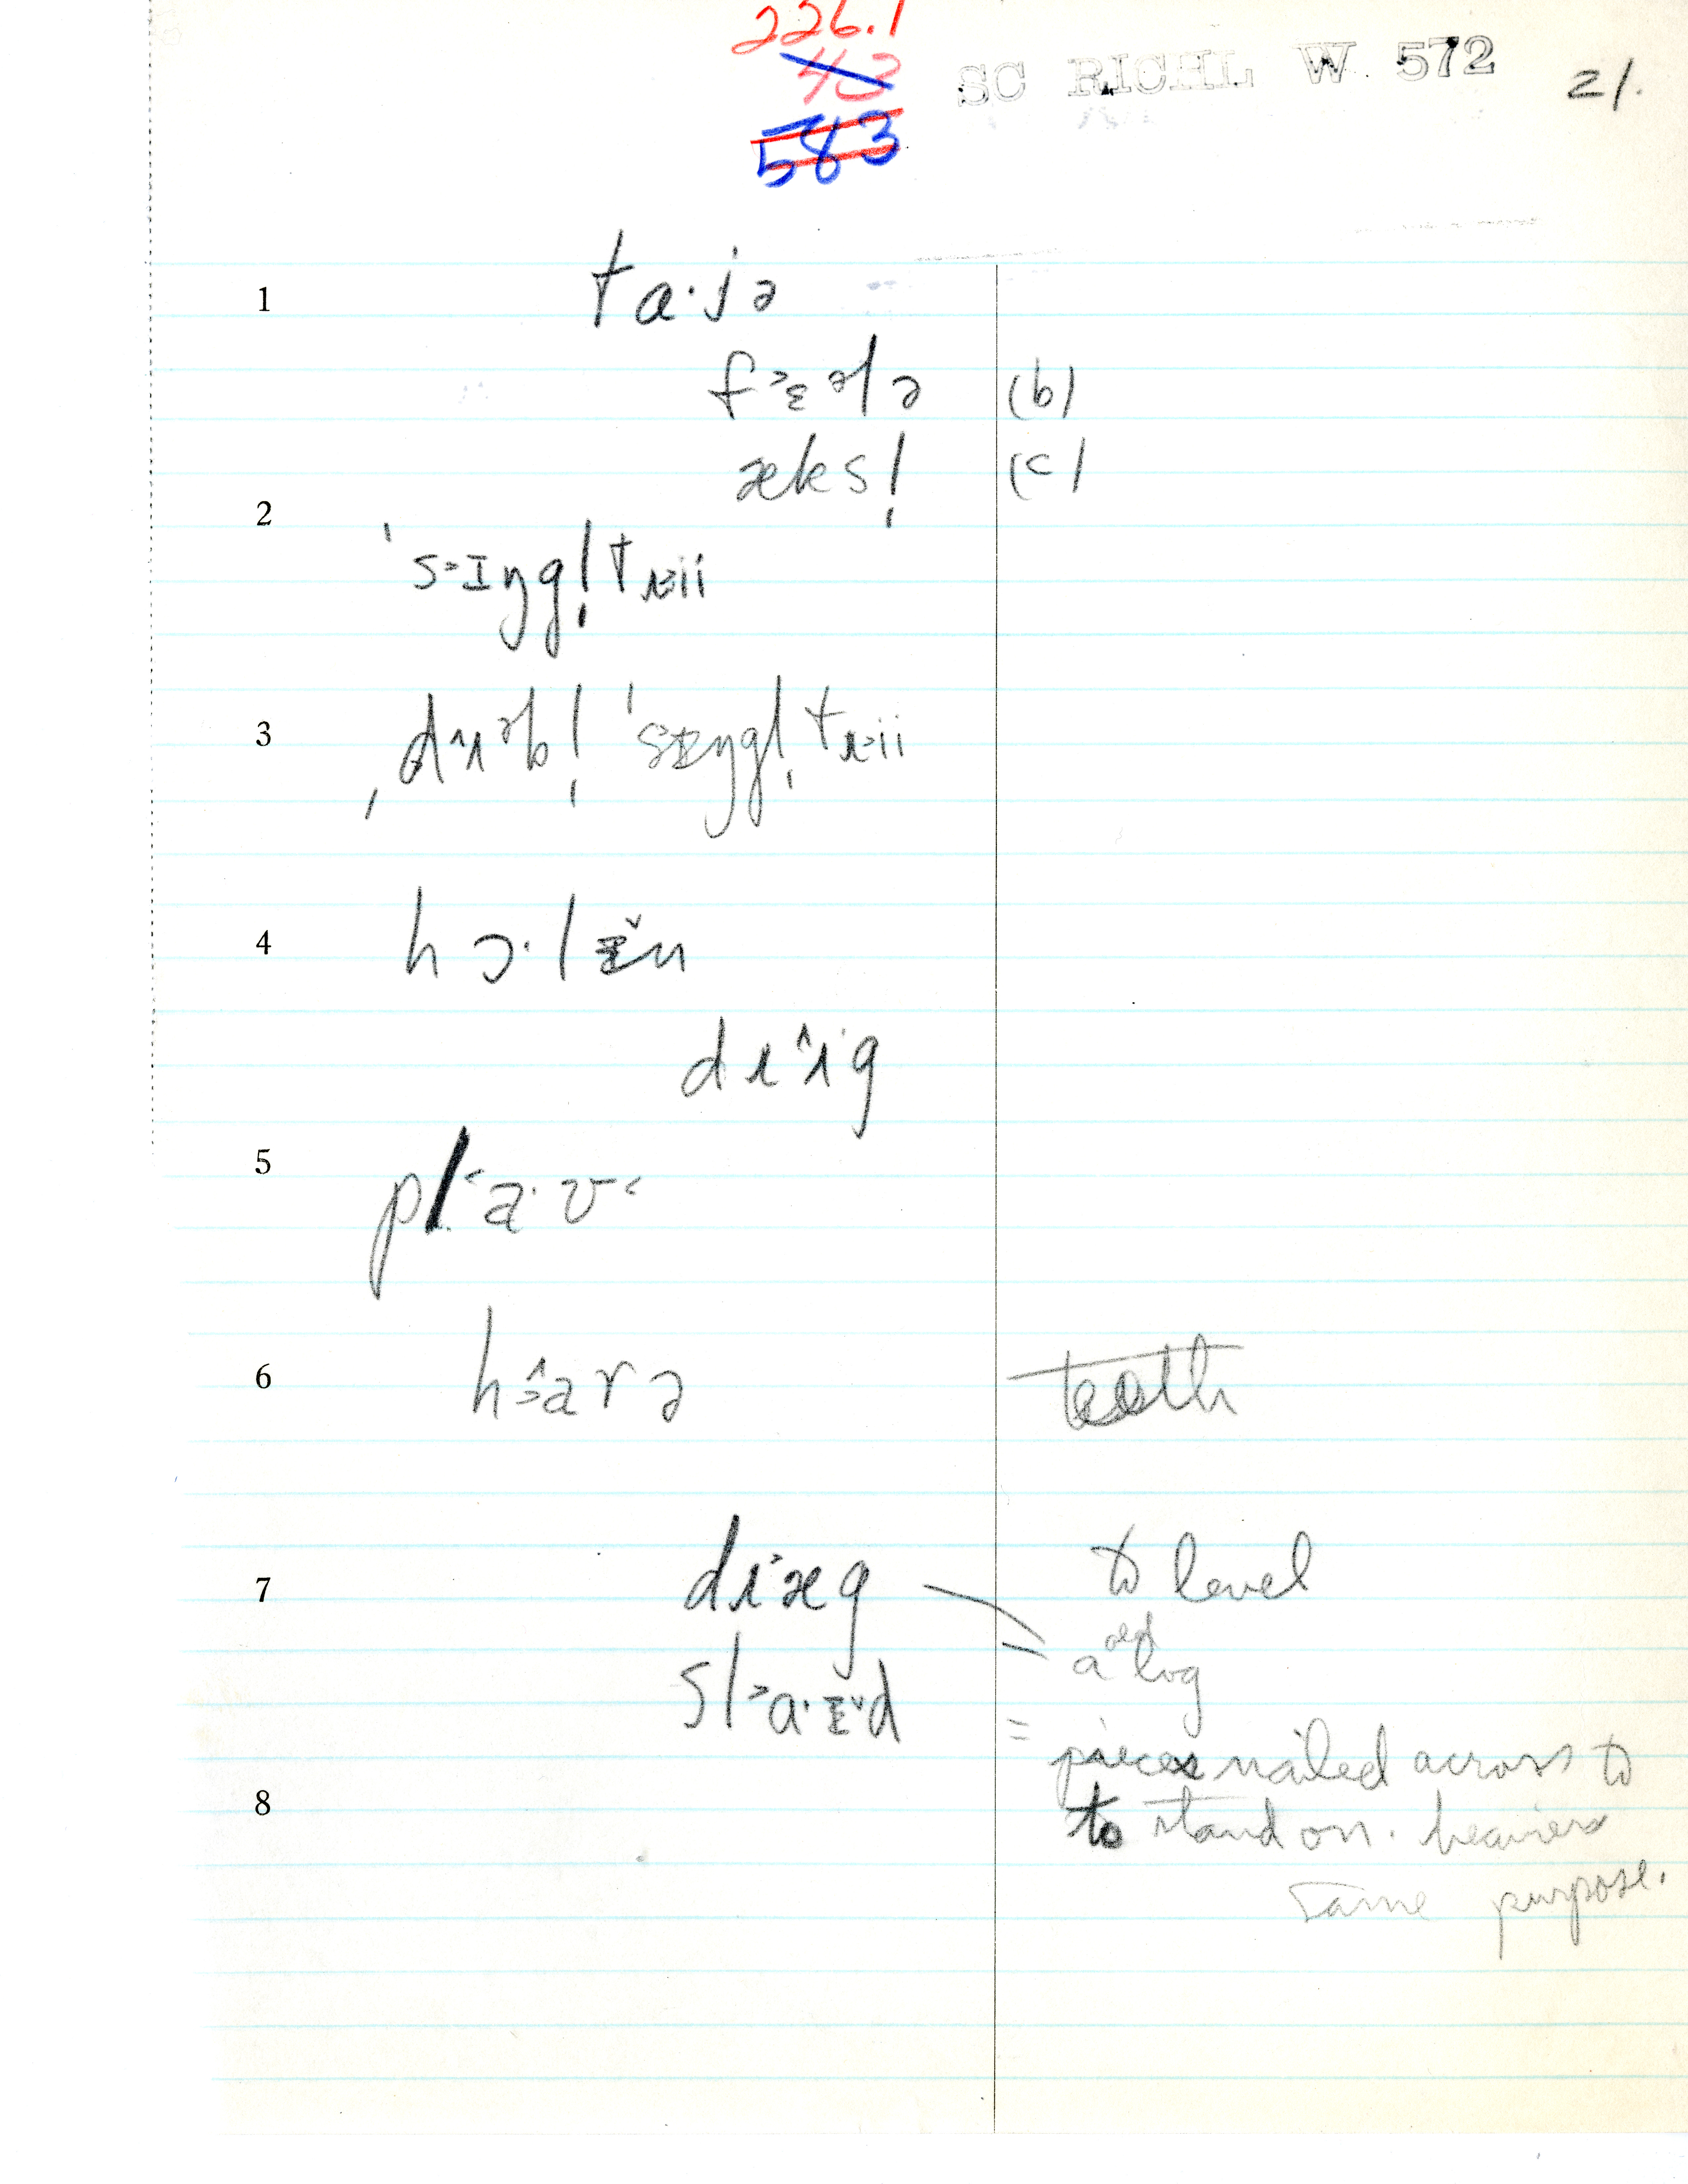 226.1
43
583
SC RICHL W 572
21.
1
ta·jə
fɛələ (b)
æks! (c)
2
ˈsɪŋgl̩trii
3
ˌdʌəbl̩ ˈsɪŋgl̩trii
4
hɔ·lɪn
drʌɪg
5
pla·ʊ
6
harə teeth
7
dræg to level
a old log
sla·ɪd
= pieces nailed across to
8
to stand on. heavier
same purpose.